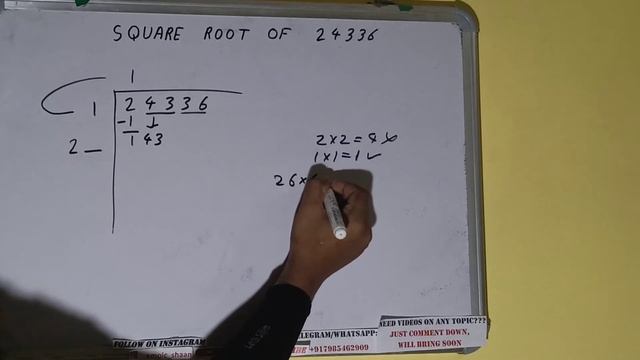 SQUARE ROOT OF 24336
1
1 24336
-1 ↓
2_ 143
2×2=4 ×
1×1=1 ✓
26×
FOLLOW ON INSTAGRAM
TELEGRAM/WHATSAPP:
+917985462909
NEED VIDEOS ON ANY TOPIC???
JUST COMMENT DOWN,
WILL BRING SOON